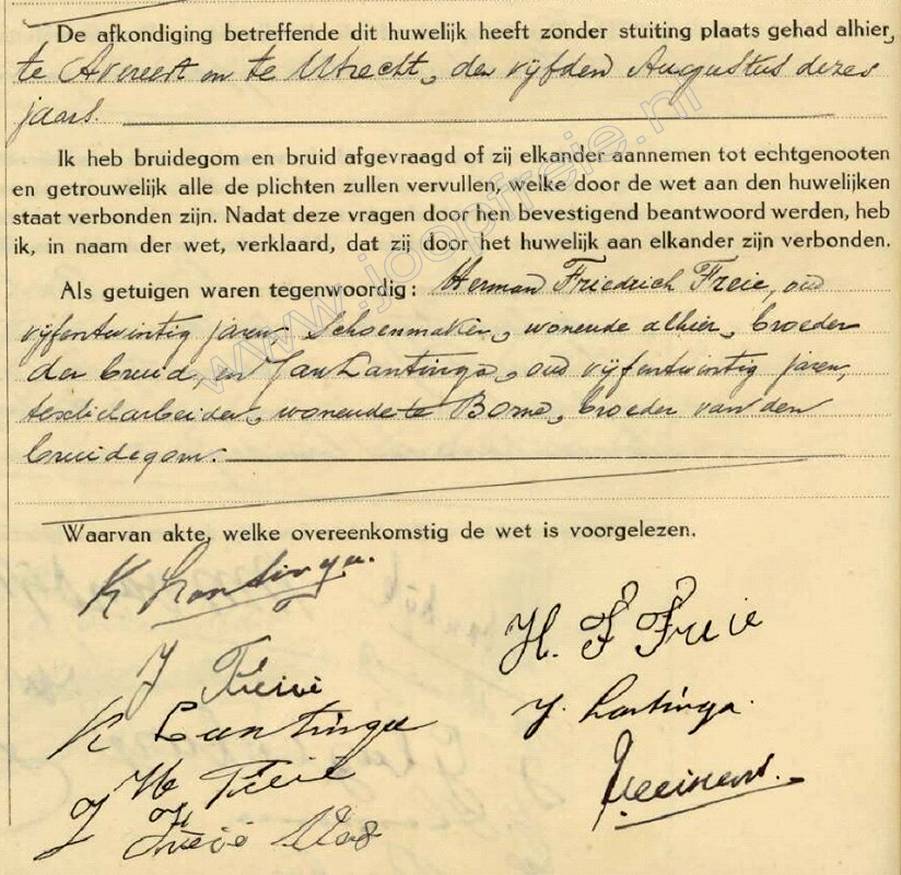 De afkondiging betreffende dit huwelijk heeft zonder stuiting plaats gehad alhier,
te Avereest en te Utrecht, den vijfden Augustus dezes
jaars.
Ik heb bruidegom en bruid afgevraagd of zij elkander aannemen tot echtgenooten
en getrouwelijk alle de plichten zullen vervullen, welke door de wet aan den huwelijken
staat verbonden zijn. Nadat deze vragen door hen bevestigend beantwoord werden, heb
ik, in naam der wet, verklaard, dat zij door het huwelijk aan elkander zijn verbonden.
Als getuigen waren tegenwoordig: Herman Friedrich Freie, oud
vijfentwintig jaren, Schoenmaker, wonende alhier, broeder
der bruid, en Jan Lantinga, oud vijfentwintig jaren,
textielarbeider, wonende te Borne, broeder van den
bruidegom.
www.joopfreie.nl
Waarvan akte, welke overeenkomstig de wet is voorgelezen.
K Lantinga.
H. F Freie
J Freie
J. Lantinga.
K Lantinga
J H Freie
J Freie